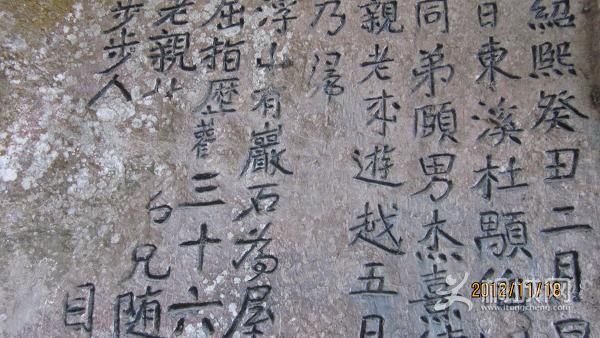 紹熙癸丑二月
日東溪杜顒
同弟頤男杰熹
親老來遊越五日
乃歸
浮山有巖石為屋
屈指歷
三十六
老親
兄随
步步人
目
2012/11/18
www.itongcheng.com